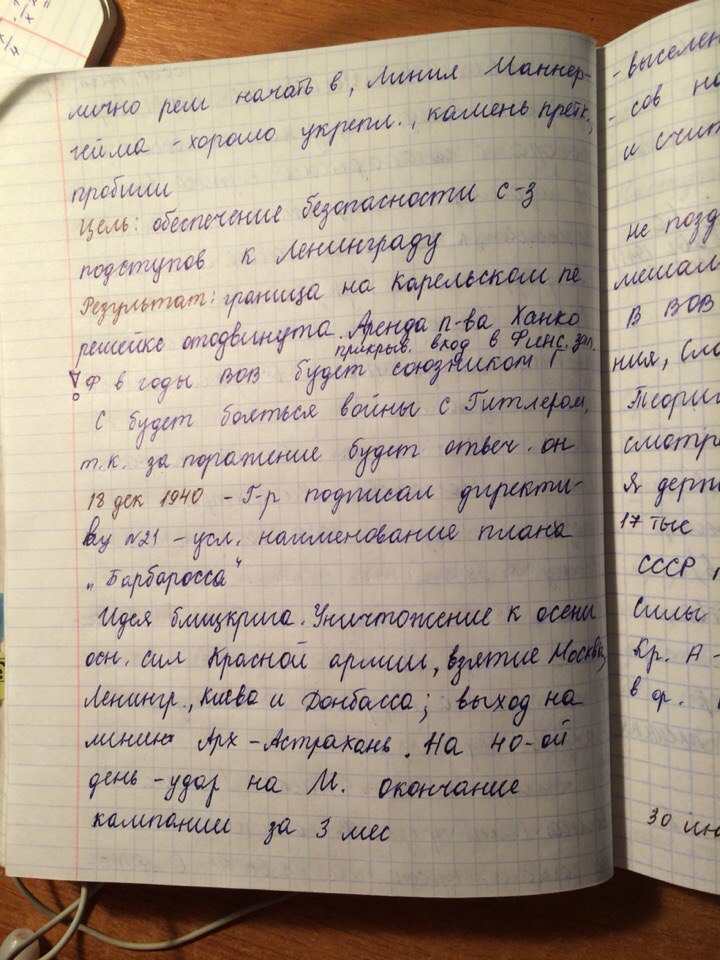 лично реш начать в, Линия Маннер-
гейма - хорошо укрепл., камень претк.,
пробили
Цель: обеспечение безопасности с-з
подступов к Ленинграду
Результат: граница на Карельском пе
решейке отодвинута. Аренда п-ва Ханко
прикрыв. вход в Финс. зал.
! Ф в годы ВОВ будет союзником Г
С будет бояться войны с Гитлером,
т.к. за поражение будет отвеч. он
18 дек 1940 - Г-р подписал директи-
ву №21 - усл. наименование плана
„Барбаросса"
Идея блицкрига. Уничтожение к осени
осн. сил Красной армии, взятие Москвы,
Ленингр., Киева и Донбасса; выход на
линию Арх - Астрахань. На 40-ой
день - удар на М. окончание
кампании за 3 мес
- выселен
- сов на
и счит
не позд
мешал
В ВОВ
ния, Сло
Теори
смотр
Я держ
17 тыс
СССР
Силы
Кр. А -
в ф.
30 ию